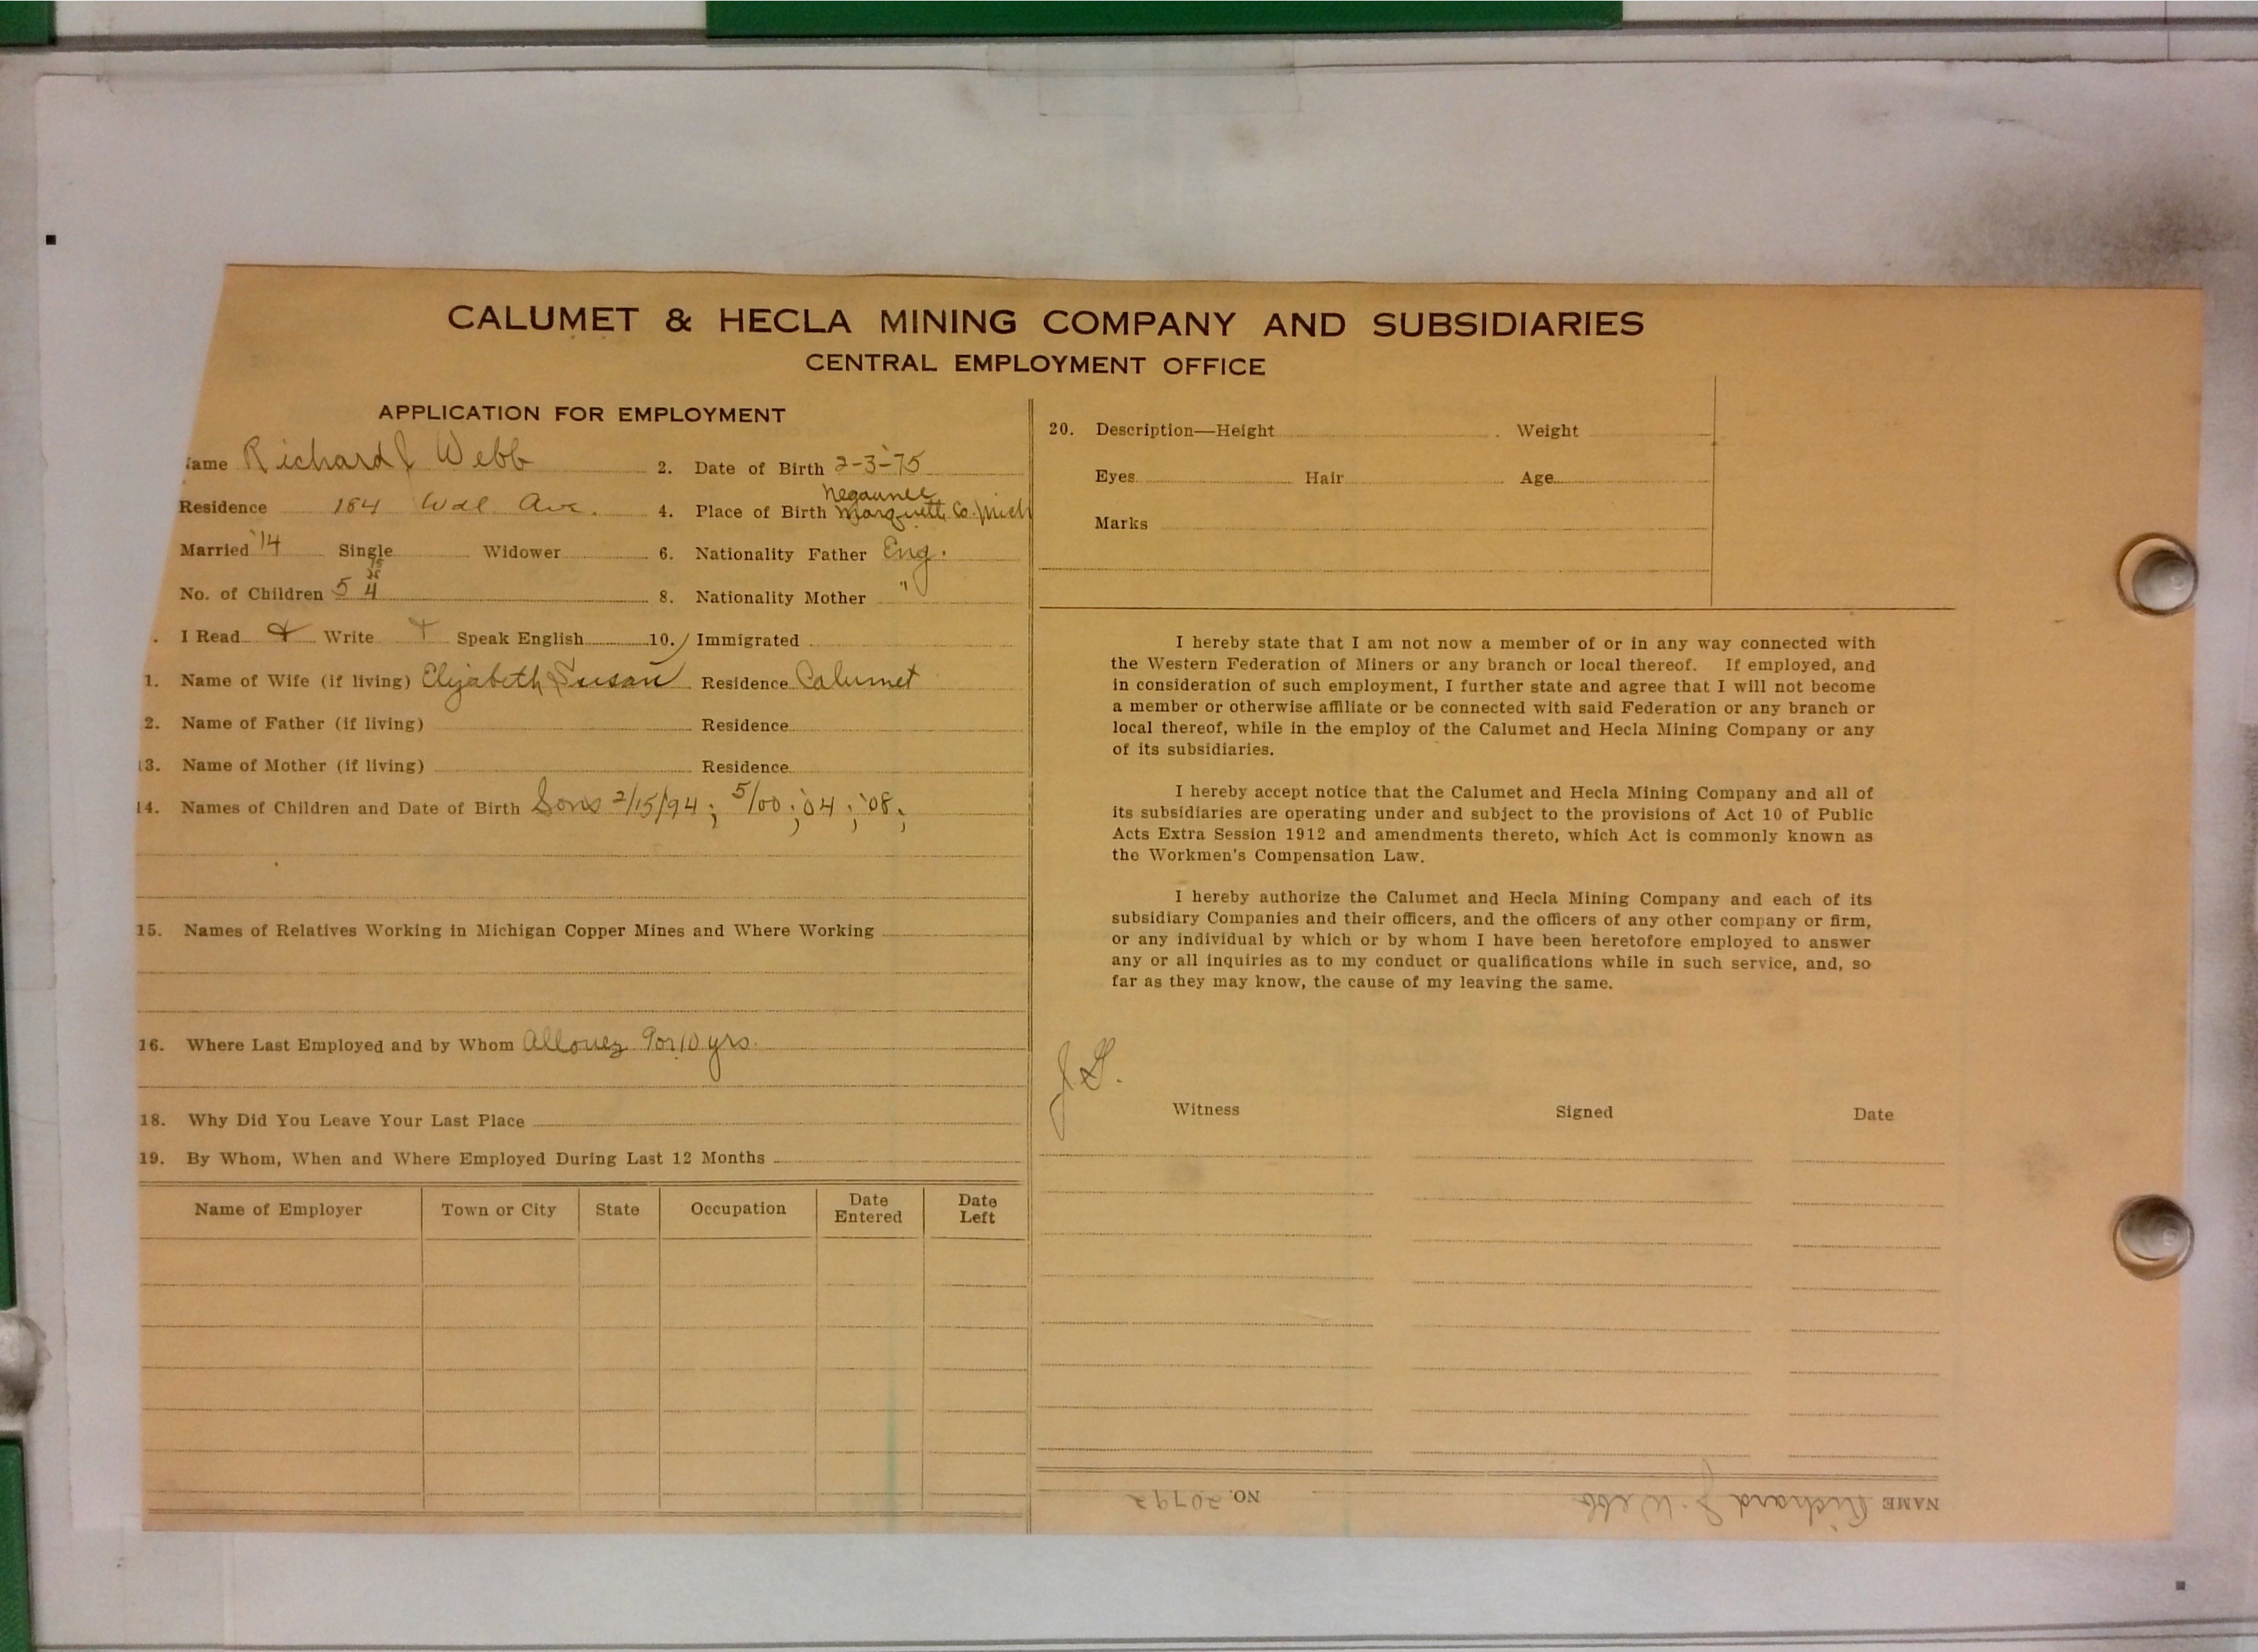 CALUMET & HECLA MINING COMPANY AND SUBSIDIARIES
CENTRAL EMPLOYMENT OFFICE
APPLICATION FOR EMPLOYMENT
ame Richard J Webb 2. Date of Birth 2-3-'75
Residence 184 Ave. 4. Place of Birth Negaunee Marquette Co. Mich
Married '14 Single Widower 6. Nationality Father Eng.
No. of Children 5 4 8. Nationality Mother "
. I Read + Write + Speak English 10. Immigrated
1. Name of Wife (if living) Elizabeth Susan Residence Calumet
2. Name of Father (if living) Residence
13. Name of Mother (if living) Residence
14. Names of Children and Date of Birth Sons 2/15/94; 5/00; '04; '08;
15. Names of Relatives Working in Michigan Copper Mines and Where Working
16. Where Last Employed and by Whom Allouez 9 or 10 yrs.
18. Why Did You Leave Your Last Place
19. By Whom, When and Where Employed During Last 12 Months
Name of Employer Town or City State Occupation Date Entered Date Left
20. Description—Height Weight
Eyes Hair Age
Marks
I hereby state that I am not now a member of or in any way connected with
the Western Federation of Miners or any branch or local thereof. If employed, and
in consideration of such employment, I further state and agree that I will not become
a member or otherwise affiliate or be connected with said Federation or any branch or
local thereof, while in the employ of the Calumet and Hecla Mining Company or any
of its subsidiaries.
I hereby accept notice that the Calumet and Hecla Mining Company and all of
its subsidiaries are operating under and subject to the provisions of Act 10 of Public
Acts Extra Session 1912 and amendments thereto, which Act is commonly known as
the Workmen's Compensation Law.
I hereby authorize the Calumet and Hecla Mining Company and each of its
subsidiary Companies and their officers, and the officers of any other company or firm,
or any individual by which or by whom I have been heretofore employed to answer
any or all inquiries as to my conduct or qualifications while in such service, and, so
far as they may know, the cause of my leaving the same.
Witness Signed Date
NAME Richard J. Webb NO. 20792